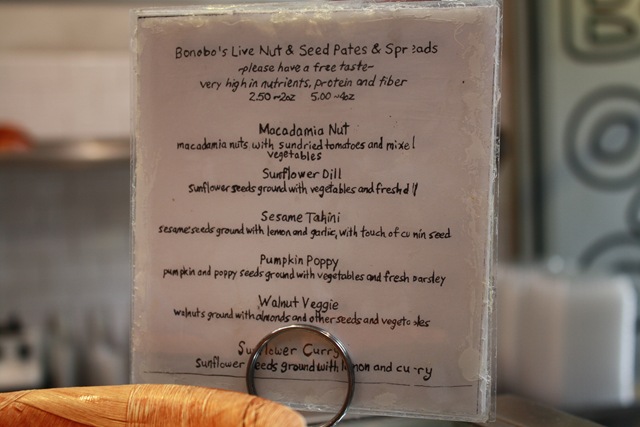 Bonobo's Live Nut & Seed Pates & Spreads
~please have a free taste~
very high in nutrients, protein and fiber
2.50 ~2oz 5.00 ~4oz
Macadamia Nut
macadamia nuts with sundried tomatoes and mixed
vegetables
Sunflower Dill
sunflower seeds ground with vegetables and fresh dill
Sesame Tahini
sesame seeds ground with lemon and garlic, with touch of cumin seed
Pumpkin Poppy
pumpkin and poppy seeds ground with vegetables and fresh parsley
Walnut Veggie
walnuts ground with almonds and other seeds and vegetables
Sunflower Curry
Sunflower seeds ground with lemon and curry